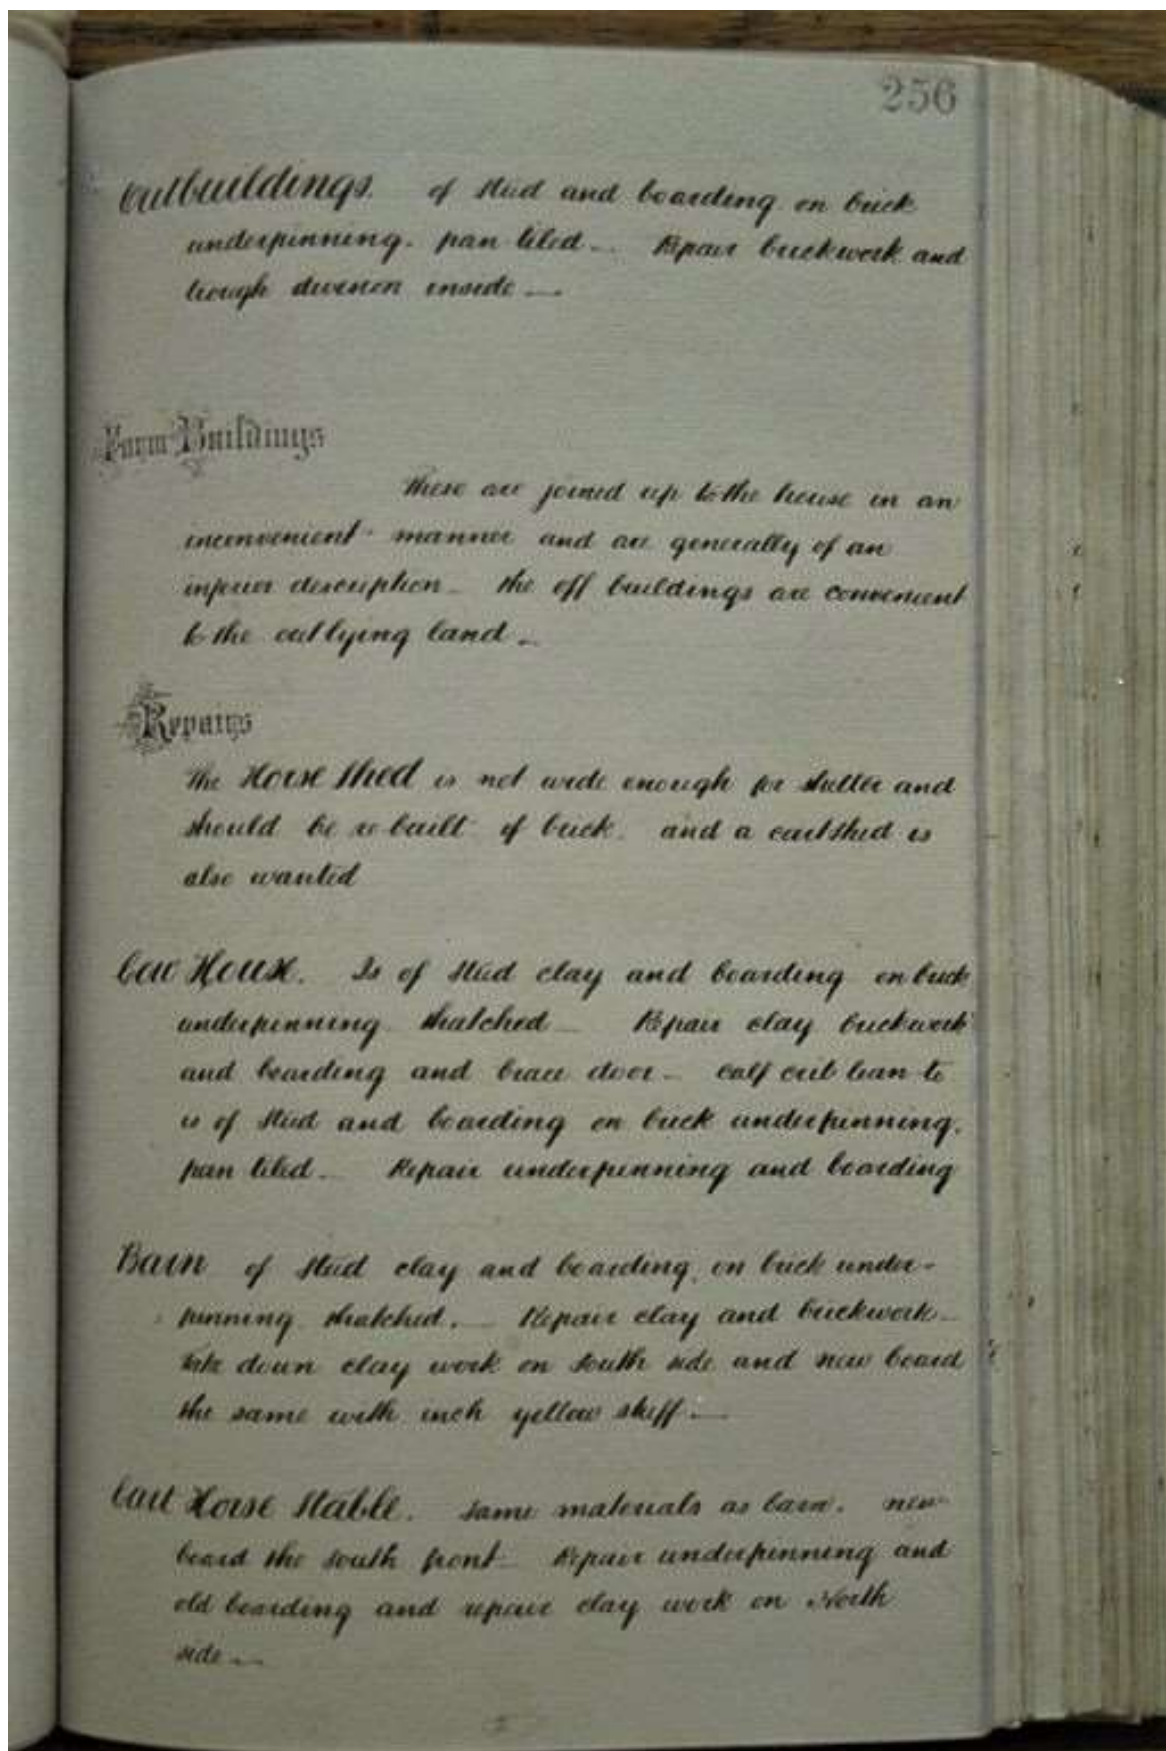 256
Outbuildings. of stud and boarding on brick
underpinning. pan tiled — Repair brickwork and
trough division inside —
Farm Buildings
These are joined up to the house in an
inconvenient manner and are generally of an
inferior description — the off buildings are convenient
to the outlying land —
Repairs
The Horse Shed is not wide enough for shelter and
should be re-built of brick. and a cartshed is
also wanted
Cow House. Is of stud clay and boarding on brick
underpinning thatched — Repair clay brickwork
and boarding and brace door — calf crib lean to
is of stud and boarding on brick underpinning.
pan tiled — Repair underpinning and boarding
Barn of stud clay and boarding, on brick under-
pinning thatched. — Repair clay and brickwork —
take down clay work on south side and new board
the same with inch yellow stuff. —
Cart Horse Stable. same materials as barn. new
board the south front — Repair underpinning and
old boarding and repair clay work on North
side —